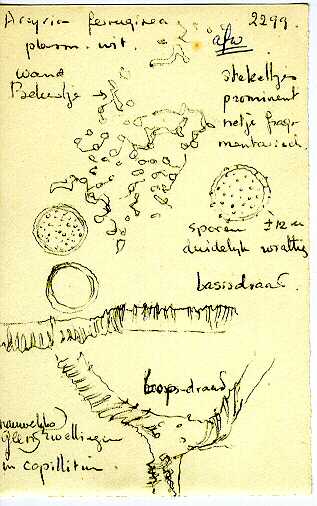 Arcyria ferruginea 2299.
plasm. wit. afw
wand
Bekertje
stekeltjes
prominent
netje frag-
mentarisch.
sporen ± 12 u
duidelijk wrattig
basisdraad.
loops-draad
nauwelijks
geen zwellingen
in capillitium.